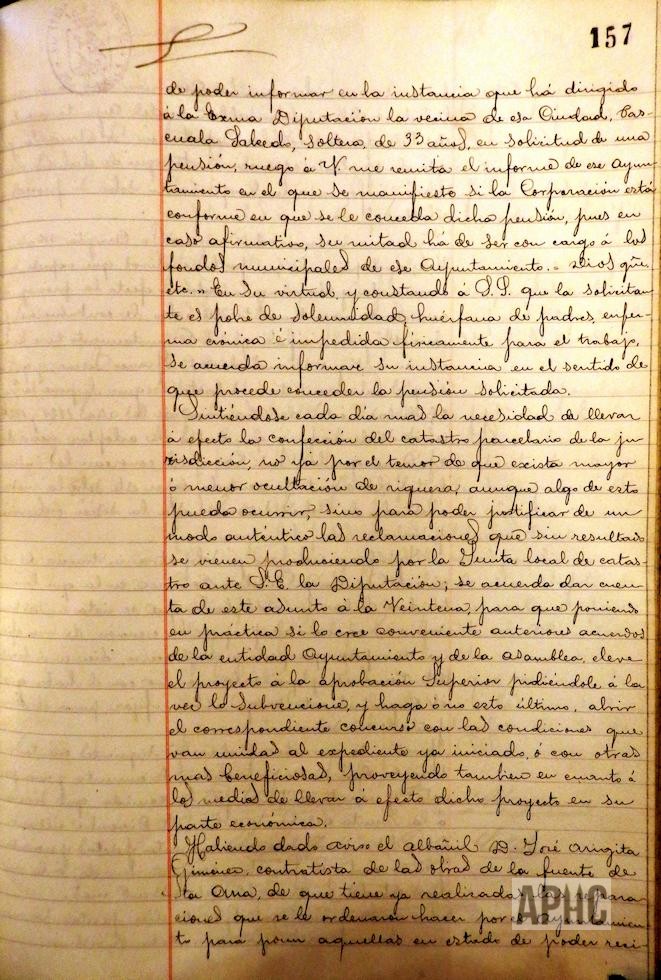 157
de poder informar en la instancia que há dirigido
á la Exma Diputación la vecina de esa Ciudad, Pas-
cuala Salcedo, soltera, de 33 años, en solicitud de una
pensión, ruego á V. me remita el informe de ese Ayun-
tamiento en el que se manifieste si la Corporación está
conforme en que se le conceda dicha pensión, pues en
caso afirmativo, su mitad há de ser con cargo á los
fondos municipales de ese Ayuntamiento.= Dios gũe.
etc.» En su virtual, y constando á S.S. que la solicitan-
te es pobre de solemnidad, huérfana de padres, enfer-
ma crónica é impedida físicamente para el trabajo,
se acuerda informar su instancia en el sentido de
que procede conceder la pensión solicitada.
Sintiéndose cada día mas la necesidad de llevar
á efecto la confección del catastro parcelario de la ju-
risdicción, no yá por el temor de que exista mayor
ó menor ocultación de riqueza, aunque algo de esto
pueda ocurrir, sino para poder justificar de un
modo auténtico las reclamaciones que sin resultado
se vienen produciendo por la Junta local de catas-
tro ante S.E. la Diputación; se acuerda dar cuen-
ta de este asunto á la Veintena, para que poniendo
en práctica si lo cree conveniente anteriores acuerdos
de la entidad Ayuntamiento y de la asamblea, eleve
el proyecto á la aprobación Superior pidiéndole á la
vez la subvencione, y haga ó no esto último, abrir
el correspondiente concurso con las condiciones que
van unidas al expediente ya iniciado, ó con otras
mas beneficiosas, proveyendo tambien en cuanto á
los medios de llevar á efecto dicho proyecto en su
parte económica.
Habiendo dado aviso el albañil D. José Angita
Giménez, contratista de las obras de la fuente de
Sta Ana, de que tiene ya realizadas las repara-
ciones que se le ordenaron hacer por el Ayuntamien-
to para poner aquellas en estado de poder reci-
APHC